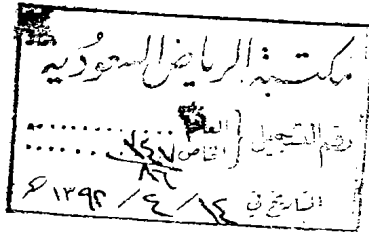 مكتبة الرياض السعودية
رقم التسجيل { العام ............
الخاص ٧٤٧ / ٨٦
التاريخ في ١٤ / ٤ / ١٣٩٢ هـ